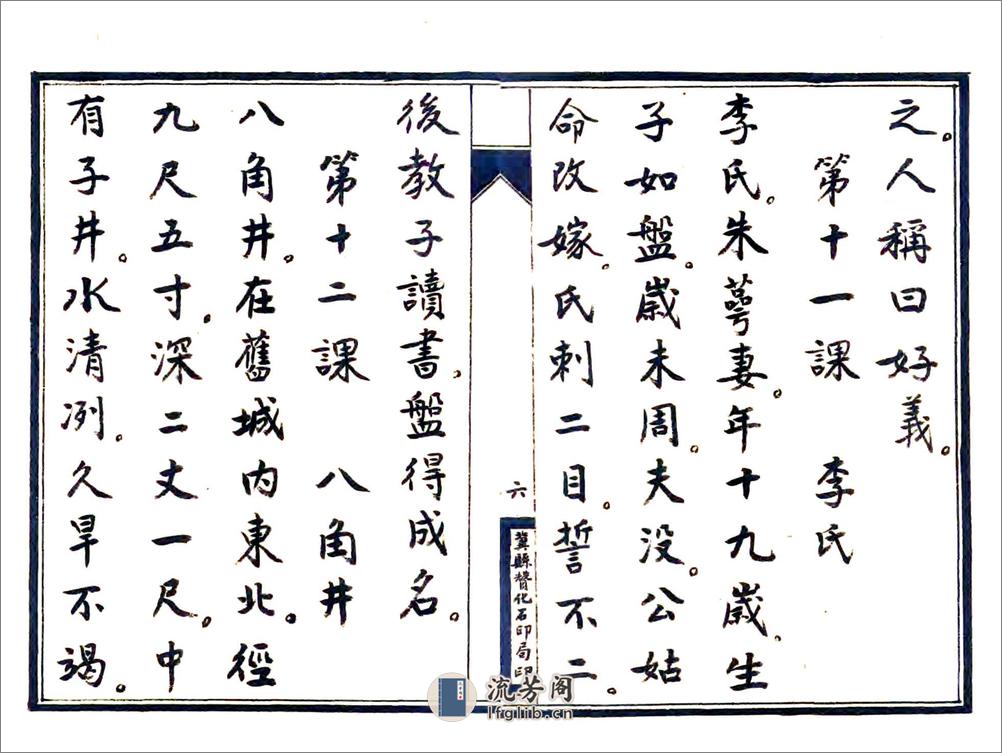 之。人稱曰好義。
第十一課　李氏
李氏。朱萼妻。年十九歲。生
子如盤。歲未周。夫没。公姑
命改嫁。氏刺二目。誓不二。
六
冀縣贊化石印局印
後教子讀書。盤得成名。
第十二課　八角井
八角井。在舊城内東北。徑
九尺五寸。深二丈一尺。中
有子井。水清冽。久旱不竭。
流芳阁
lfglib.cn